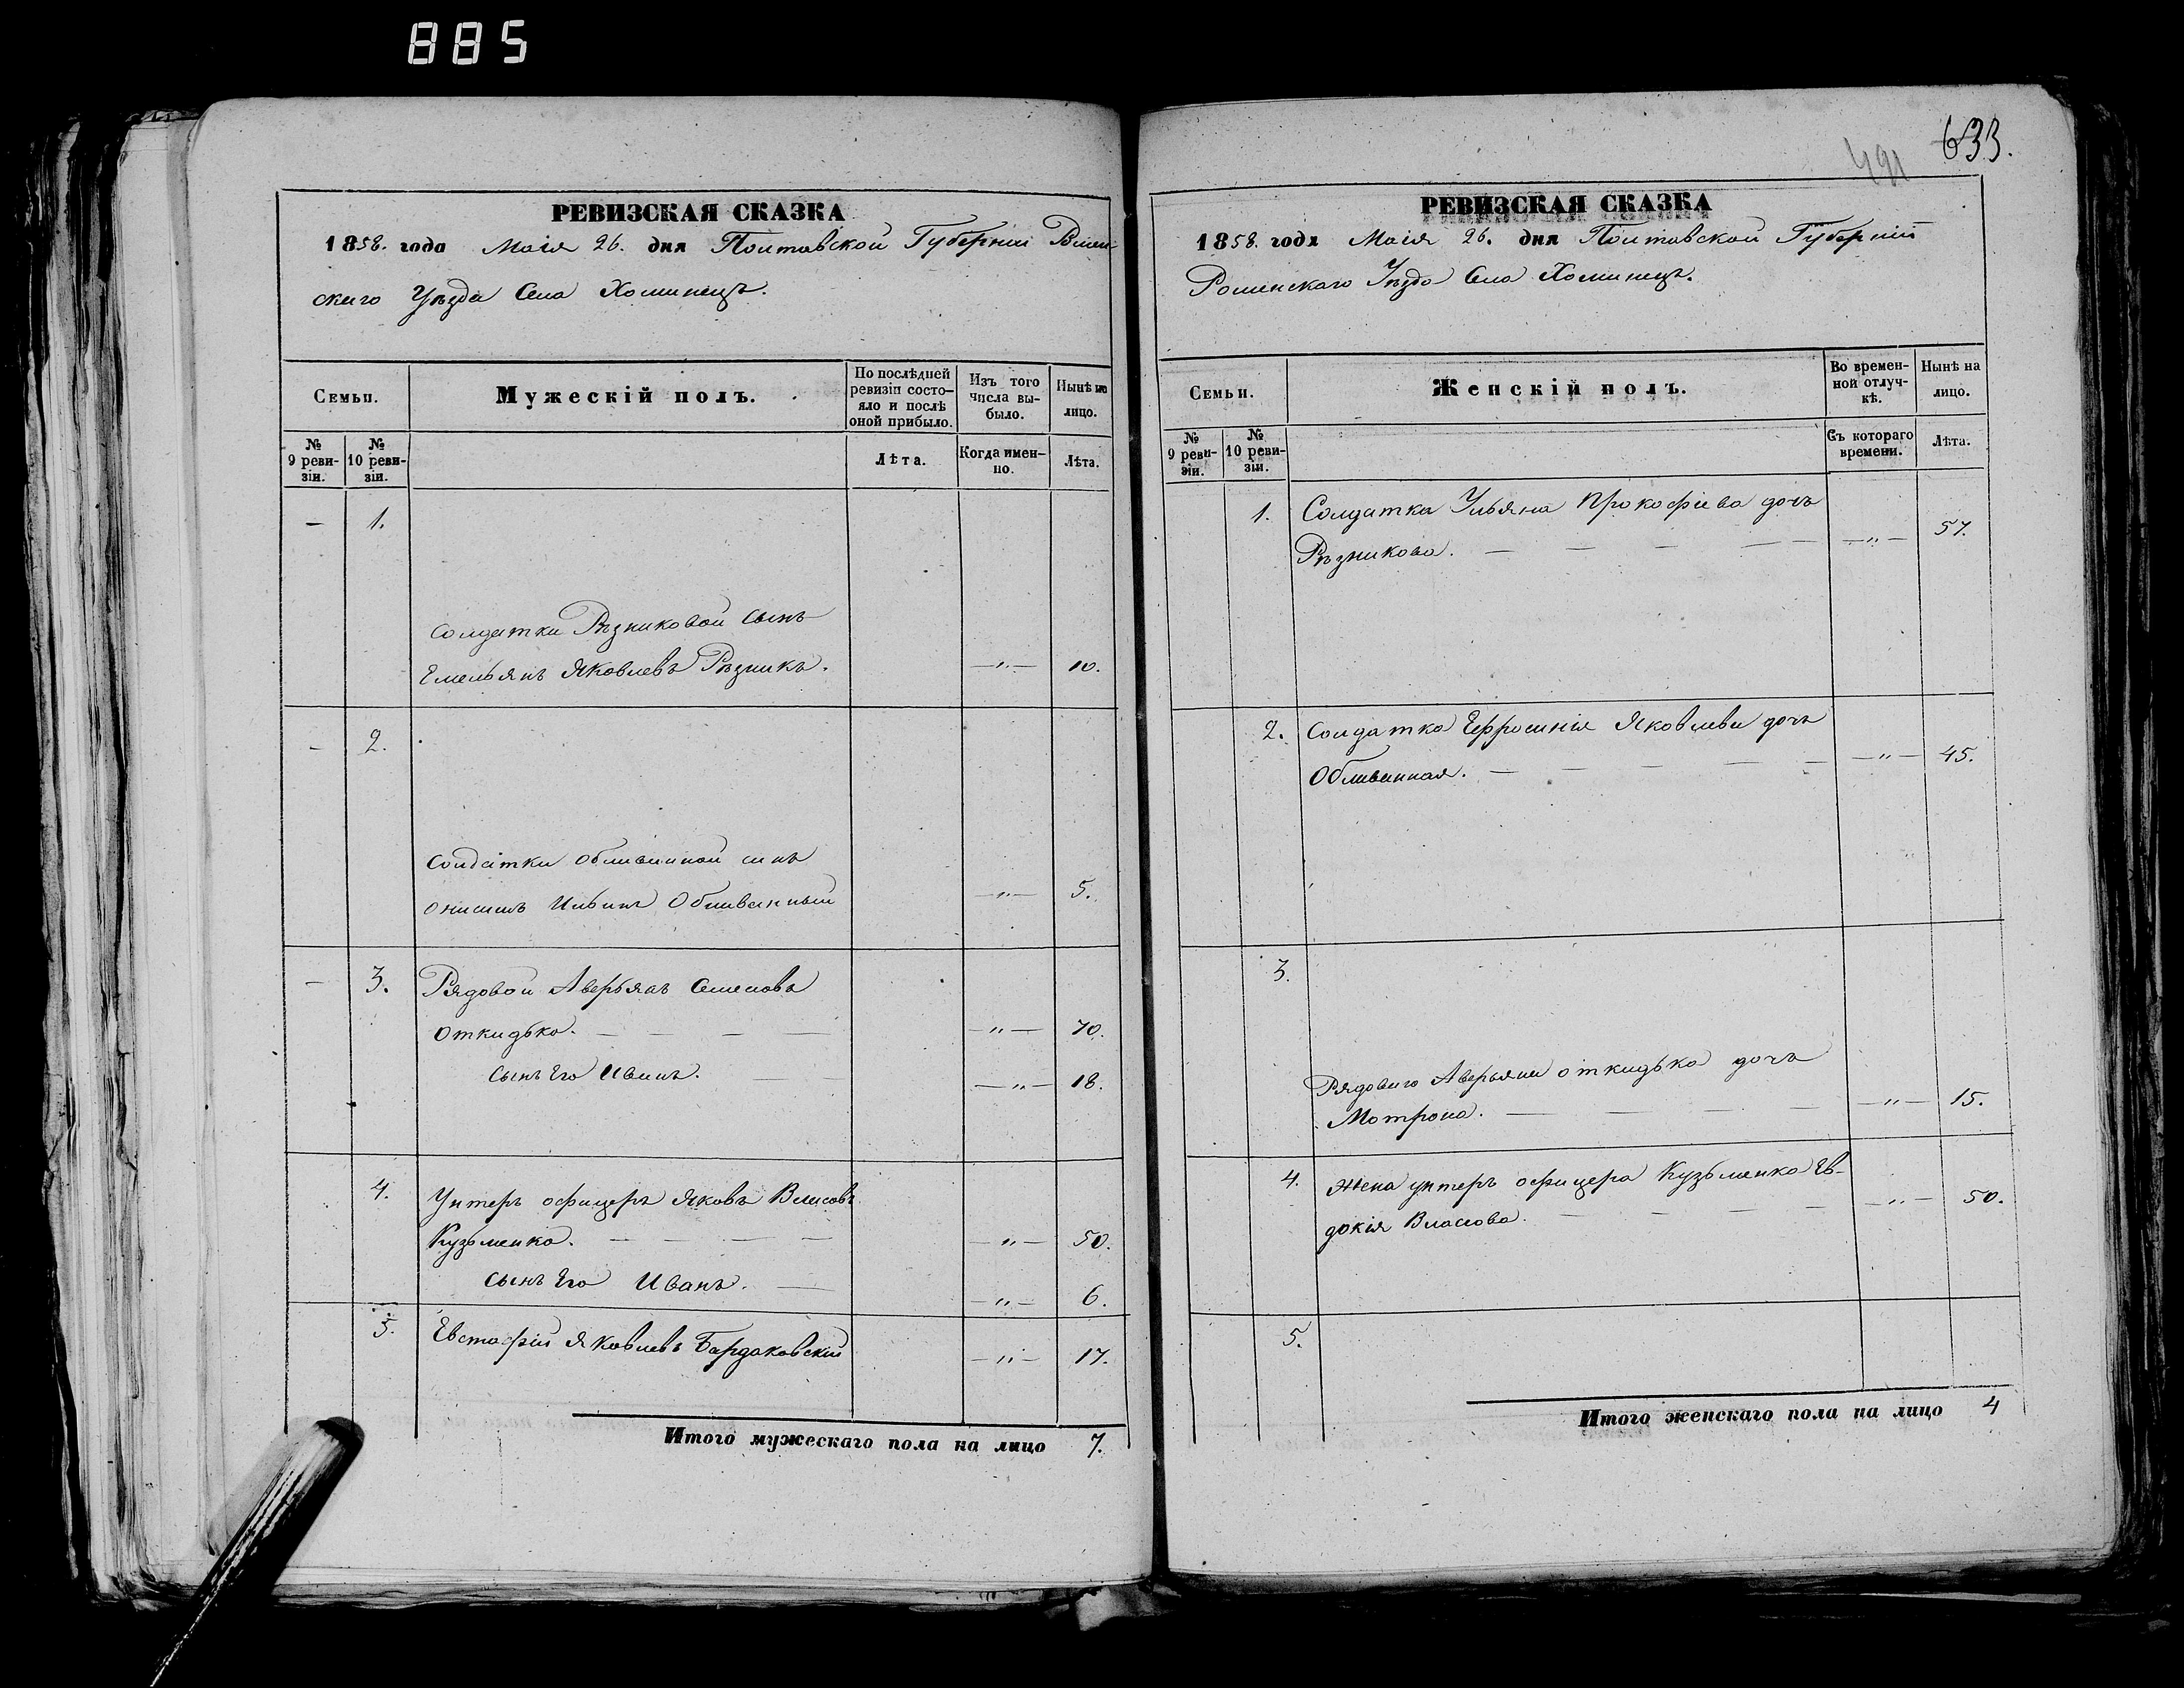 885
РЕВИЗСКАЯ СКАЗКА
1858. года Маія 26. дня Полтавской Губерніи Ромен-
скаго Уѣзда Села Хоминецъ.
Семьи.
Мужескій полъ.
По послѣдней
ревизіи состо-
яло и послѣ
оной прибыло.
Изъ того
числа вы-
было.
Нынѣ на
лицо.
№
9 реви-
зіи.
№
10 реви-
зіи.
Лѣта.
Когда имен-
но.
Лѣта.
— 1.
Солдатки Рѣзниковой сынъ
Емельянъ Яковлевъ Рѣзникъ. —"— 10.
— 2.
Солдатки Обливанной сынъ
Онисимъ Ильинъ Обливанный —"— 5.
— 3. Рядовой Аверьянъ Семеновъ
Откидько. — — — — —"— 70.
сынъ Его Иванъ. — —"— 18.
4. Унтеръ офицеръ Яковъ Власовъ
Кузьменко. — — — — —"— 50.
сынъ Его Иванъ. — —"— 6.
5. Евстафій Яковлевъ Бардаковскій —"— 17.
Итого мужескаго пола на лицо 7.
633.
491
РЕВИЗСКАЯ СКАЗКА
1858. года Маія 26. дня Полтавской Губерніи
Роменскаго Уѣзда Села Хоминецъ.
Семьи.
Женскій полъ.
Во времен-
ной отлуч-
кѣ.
Нынѣ на
лицо.
№
9 реви-
зіи.
№
10 реви-
зіи.
Съ котораго
времени.
Лѣта.
1. Солдатка Ульяна Прокофіева дочь
Рѣзникова. — — — — — —"— 57.
2. Солдатка Ефросинія Яковлева дочь
Обливанная. — — — — — —"— 45.
3.
Рядоваго Аверьяна Откидька дочь
Мотрона. — — — — —"— 15.
4. Жена унтеръ офицера Кузьменка Ев-
докія Власова. — — — — —"— 50.
5.
Итого женскаго пола на лицо 4